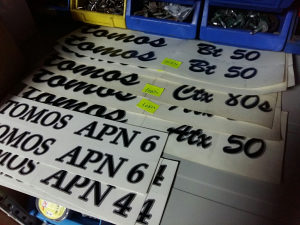 Tomos Bt 50
Tomos Bt 50
Tomos Ctx 80s
Tomos
Tomos Atx 50
TOMOS APN 6
TOMOS APN 6
APN 4
4